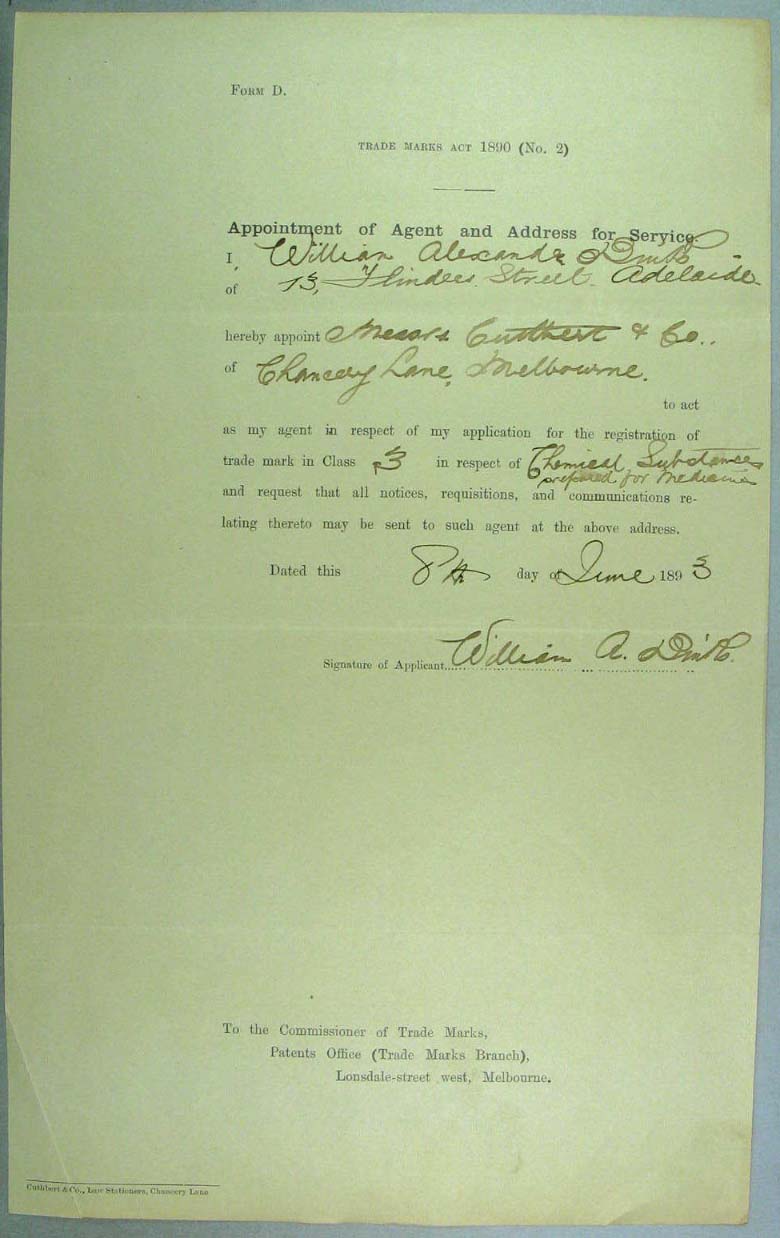 FORM D.
TRADE MARKS ACT 1890 (No. 2)
Appointment of Agent and Address for Service.
I William Alexander
of 13, Flinders Street. Adelaide.
hereby appoint Messrs Cuthbert & Co..
of Chancery Lane, Melbourne.
to act
as my agent in respect of my application for the registration of
trade mark in Class 3 in respect of Chemical Substances
prepared for Medicine
and request that all notices, requisitions, and communications re-
lating thereto may be sent to such agent at the above address.
Dated this 8th day of June 1893
Signature of Applicant William A.
To the Commissioner of Trade Marks,
Patents Office (Trade Marks Branch),
Lonsdale-street west, Melbourne.
Cuthbert & Co., Law Stationers, Chancery Lane